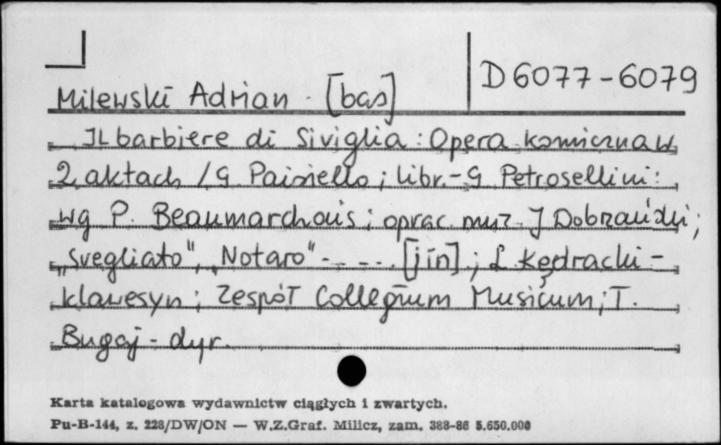 D 6077-6079
Milewski Adrian - [bas]
Il barbiere di Siviglia: Opera komiczna w
2 aktach / G. Paisiello; libr.- G. Petrosellini:
wg P. Beaumarchais; oprac. muz. J Dobrzański;
"Svegliato", "Notaro" - - - - [jin]; L. Kędracki -
klawesyn; Zespół Collegium Musicum; T.
Bugaj - dyr.
Karta katalogowa wydawnictw ciągłych i zwartych.
Pu-B-144, z. 228/DW/ON — W.Z.Graf. Milicz, zam. 388-86 5.650.000